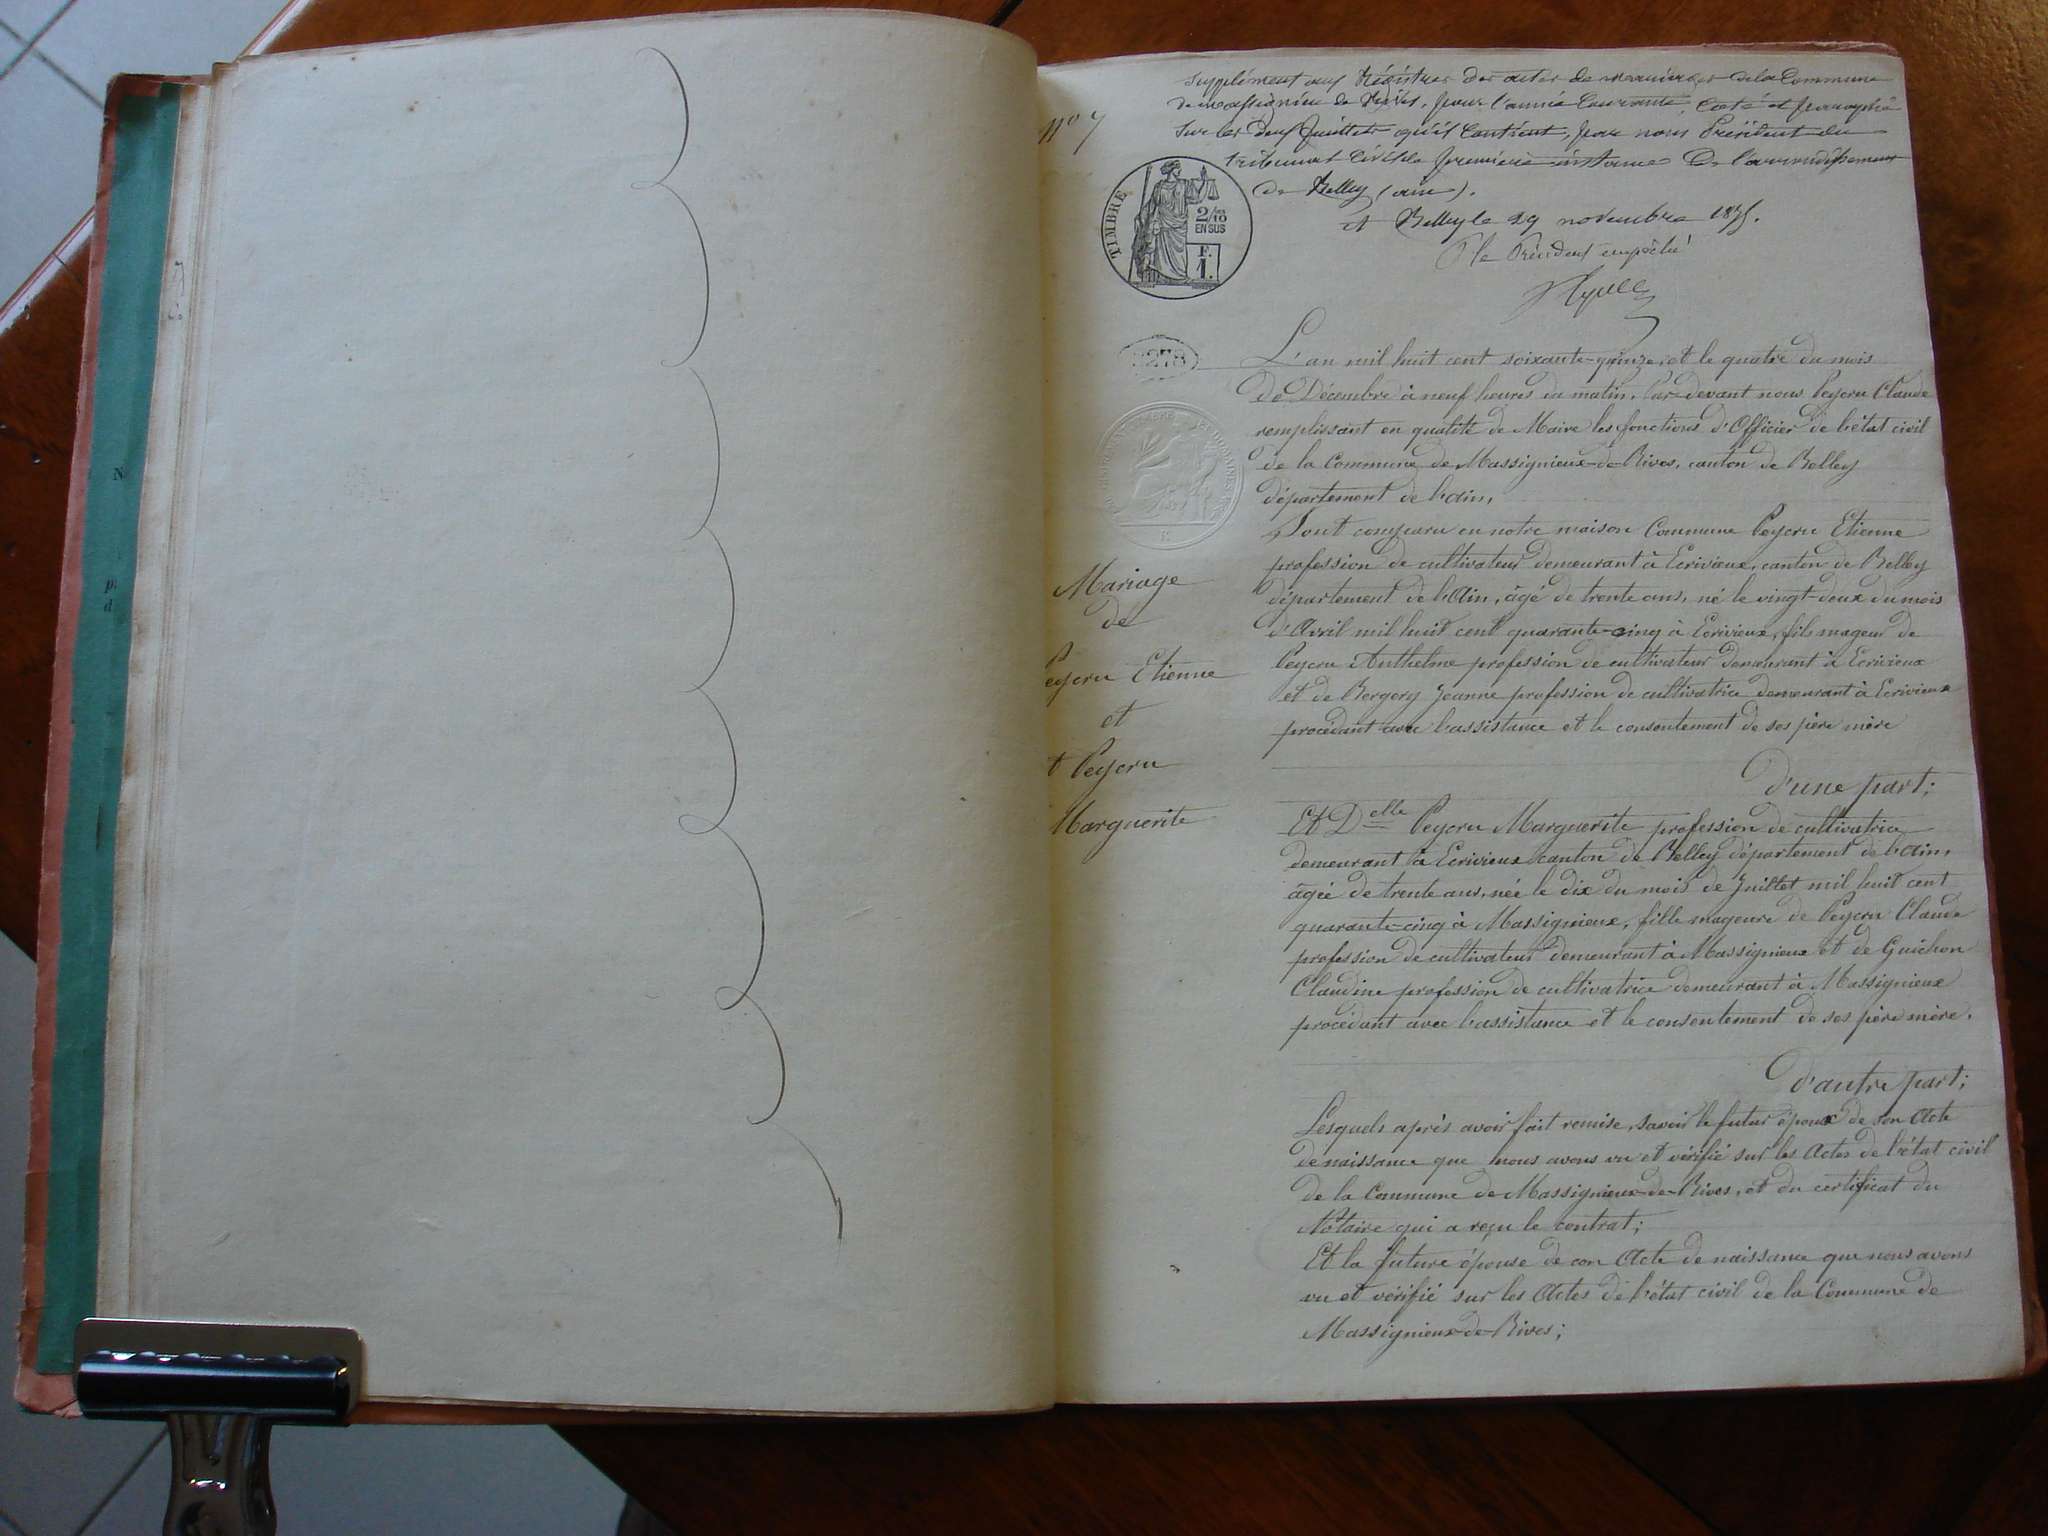 N
p.
d
Supplément aux Régistres des actes de mariages de la Commune
de Massignieu de Rives, pour l'année Courante, Coté et paraphé
sur les deux feuillets qu'il Contient, par nous Président du
tribunal Civil de première instance de l'arrondissement
de Belley (ain).
A Belley le 29 novembre 1875.
P le Président empêché
N° 7
TIMBRE
2/10
EN SUS
F.
1.
278
Mariage
de
Peycru Etienne
et
Peycru
Marguerite
L'an mil huit cent soixante-quinze, et le quatre du mois
de Décembre à neuf heures du matin. Par-devant nous Peycru Claude
remplissant en qualité de Maire les fonctions d'Officier de l'état civil
de la Commune de Massignieux-de-Rives, canton de Belley
département de l'ain,
Sont comparu en notre maison Commune Peycru Etienne
profession de cultivateur demeurant à Ecrivieux, canton de Belley
département de l'Ain, âgé de trente ans, né le vingt-deux du mois
d'Avril mil huit cent quarante-cinq à Ecrivieux, fils mageur de
Peycru Anthelme profession de cultivateur demeurant à Ecrivieux
et de Bergery Jeanne profession de cultivatrice demeurant à Ecrivieux
procédant avec l'assistance et le consentement de ses père mère
d'une part;
Et Delle Peycru Marguerite profession de cultivatrice
demeurant à Ecrivieux canton de Belley département de l'ain,
âgée de trente ans, née le dix du mois de Juillet mil huit cent
quarante-cinq à Massignieux, fille mageure de Peycru Claude
profession de cultivateur demeurant à Massignieux et de Guichon
Claudine profession de cultivatrice demeurant à Massignieux
procédant avec l'assistance et le consentement de ses père mère.
d'autre part;
Lesquels après avoir fait remise, savoir le futur époux de son Acte
de naissance que nous avons vu et vérifié sur les Actes de l'état civil
de la Commune de Massignieux-de-Rives, et du certificat du
Notaire qui a reçu le contrat;
Et la future épouse de con Acte de naissance que nous avons
vu et vérifié sur les Actes de l'état civil de la Commune de
Massignieux-de-Rives;